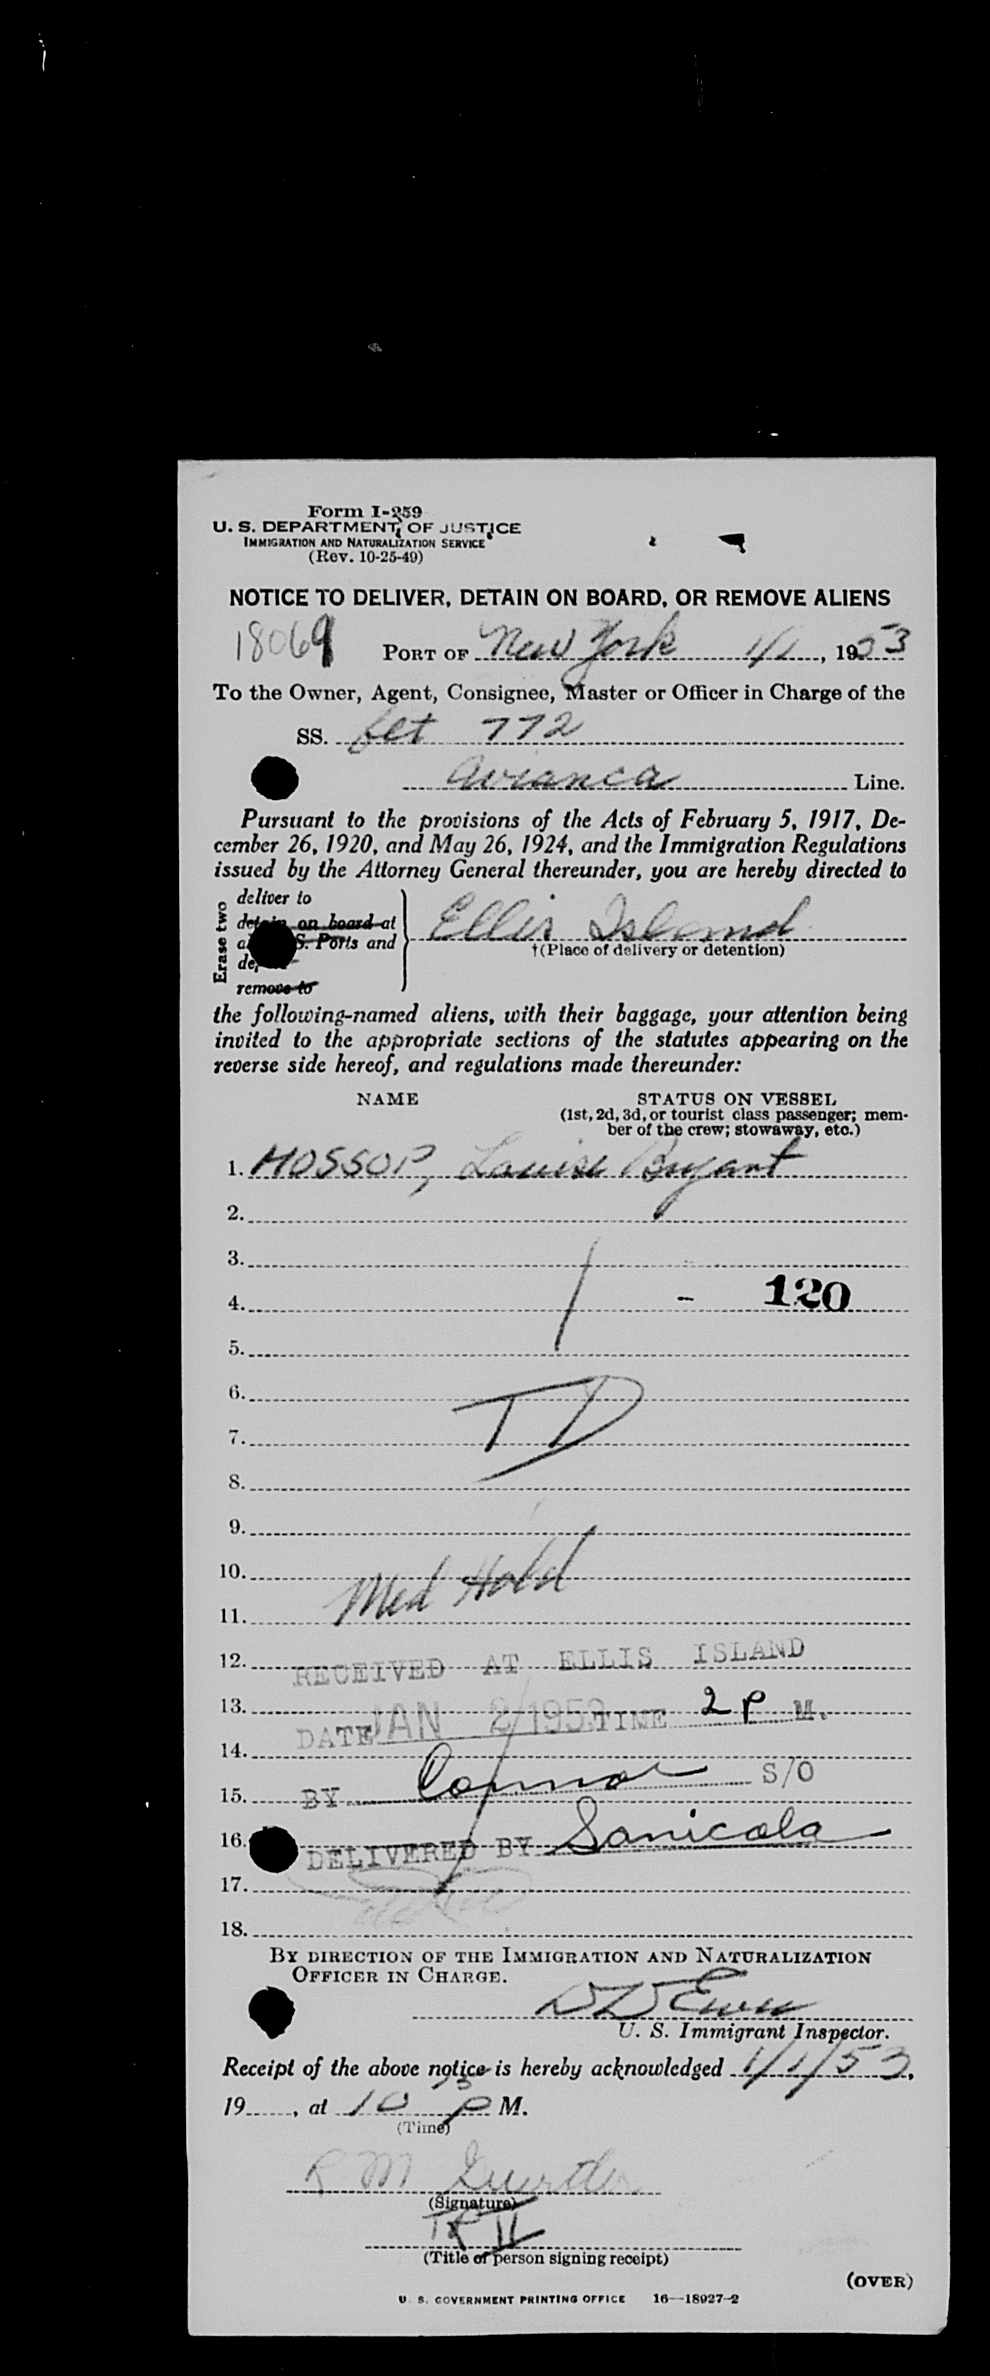 Form I-259
U. S. DEPARTMENT OF JUSTICE
IMMIGRATION AND NATURALIZATION SERVICE
(Rev. 10-25-49)
NOTICE TO DELIVER, DETAIN ON BOARD, OR REMOVE ALIENS
18069 PORT OF New York 1/1, 1953
To the Owner, Agent, Consignee, Master or Officer in Charge of the
SS. flt 772
Avianca Line.
Pursuant to the provisions of the Acts of February 5, 1917, De-
cember 26, 1920, and May 26, 1924, and the Immigration Regulations
issued by the Attorney General thereunder, you are hereby directed to
Erase two
deliver to
detain on board at
S. Ports and
remove to
Ellis Island
†(Place of delivery or detention)
the following-named aliens, with their baggage, your attention being
invited to the appropriate sections of the statutes appearing on the
reverse side hereof, and regulations made thereunder:
NAME STATUS ON VESSEL
(1st, 2d, 3d, or tourist class passenger; mem-
ber of the crew; stowaway, etc.)
1. MOSSOP, Louise Bryant
2.
3.
4. - 120
5.
6.
7. TD
8.
9.
10.
11. Med Hold
12. RECEIVED AT ELLIS ISLAND
13. DATE JAN 2 1953 TIME 2 P M.
14.
15. BY Connor S/O
16. DELIVERED BY Sanicola
17.
18.
BY DIRECTION OF THE IMMIGRATION AND NATURALIZATION
OFFICER IN CHARGE.
U. S. Immigrant Inspector.
Receipt of the above notice is hereby acknowledged 1/1/53,
19, at 10 P M.
(Time)
R M
(Signature)
(Title of person signing receipt)
(OVER)
U. S. GOVERNMENT PRINTING OFFICE 16—18927-2